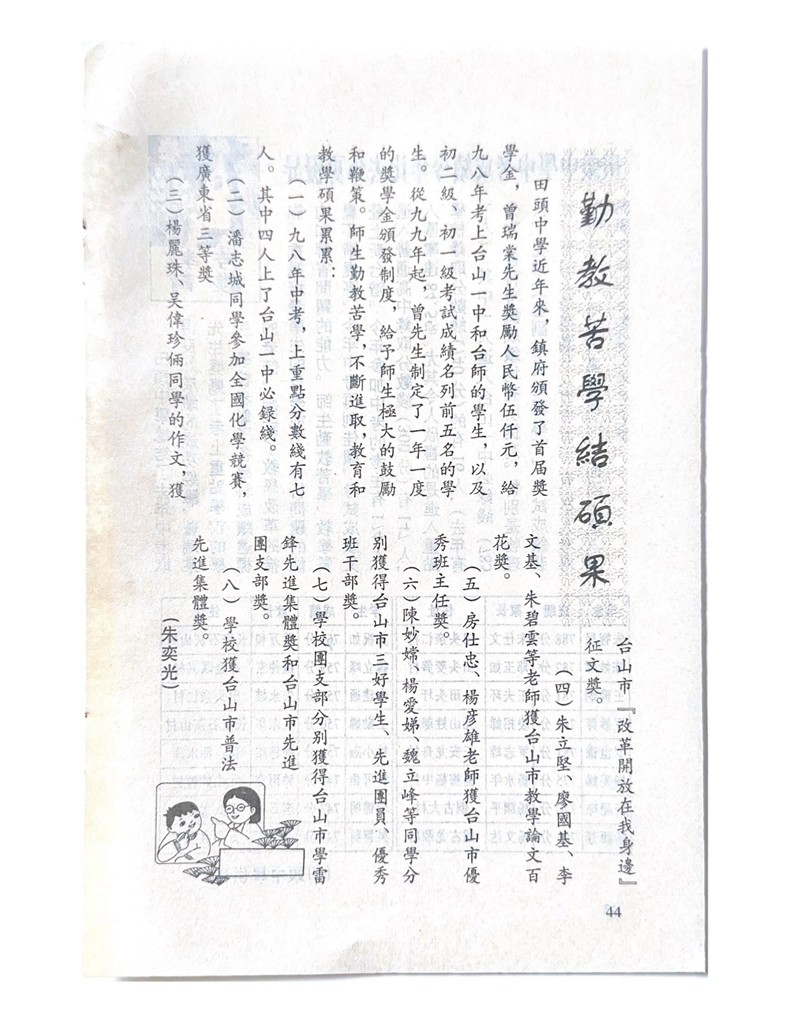 勤教苦學結碩果
田頭中學近年來，鎮府頒發了首屆獎
學金，曾瑞棠先生獎勵人民幣伍仟元，給
九八年考上台山一中和台師的學生，以及
初二級、初一級考試成績名列前五名的學
生。從九九年起，曾先生制定了一年一度
的獎學金頒發制度，給予師生極大的鼓勵
和鞭策。師生勤教苦學，不斷進取，教育和
教學碩果累累：
（一）九八年中考，上重點分數綫有七
人。其中四人上了台山一中必録綫。
（二）潘志城同學參加全國化學競賽，
獲廣東省三等獎
（三）楊麗珠、吴偉珍倆同學的作文，獲
台山市『改革開放在我身邊』
征文獎。
（四）朱立堅、廖國基、李
文基、朱碧雲等老師獲台山市教學論文百
花獎。
（五）房仕忠、楊彦雄老師獲台山市優
秀班主任獎。
（六）陳妙嫦、楊愛娣、魏立峰等同學分
别獲得台山市三好學生、先進團員、優秀
班干部獎。
（七）學校團支部分别獲得台山市學雷
鋒先進集體獎和台山市先進
團支部獎。
（八）學校獲台山市普法
先進集體獎。
（朱奕光）
44